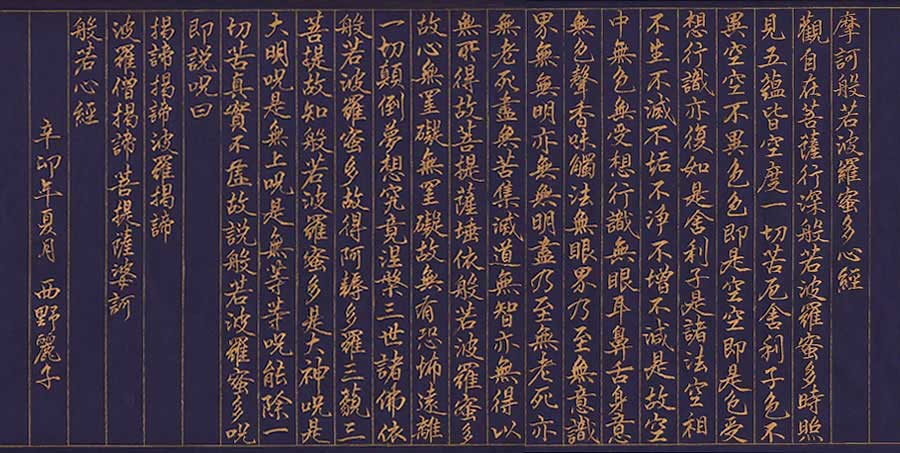 摩訶般若波羅蜜多心經
觀自在菩薩行深般若波羅蜜多時照
見五蘊皆空度一切苦厄舍利子色不
異空空不異色色即是空空即是色受
想行識亦復如是舍利子是諸法空相
不生不滅不垢不淨不增不減是故空
中無色無受想行識無眼耳鼻舌身意
無色聲香味觸法無眼界乃至無意識
界無無明亦無無明盡乃至無老死亦
無老死盡無苦集滅道無智亦無得以
無所得故菩提薩埵依般若波羅蜜多
故心無罣礙無罣礙故無有恐怖遠離
一切顛倒夢想究竟涅槃三世諸佛依
般若波羅蜜多故得阿耨多羅三藐三
菩提故知般若波羅蜜多是大神呪是
大明呪是無上呪是無等等呪能除一
切苦真實不虛故説般若波羅蜜多呪
即説呪曰
揭諦揭諦波羅揭諦
波羅僧揭諦 菩提薩婆訶
般若心經
辛卯年夏月 西野麗子